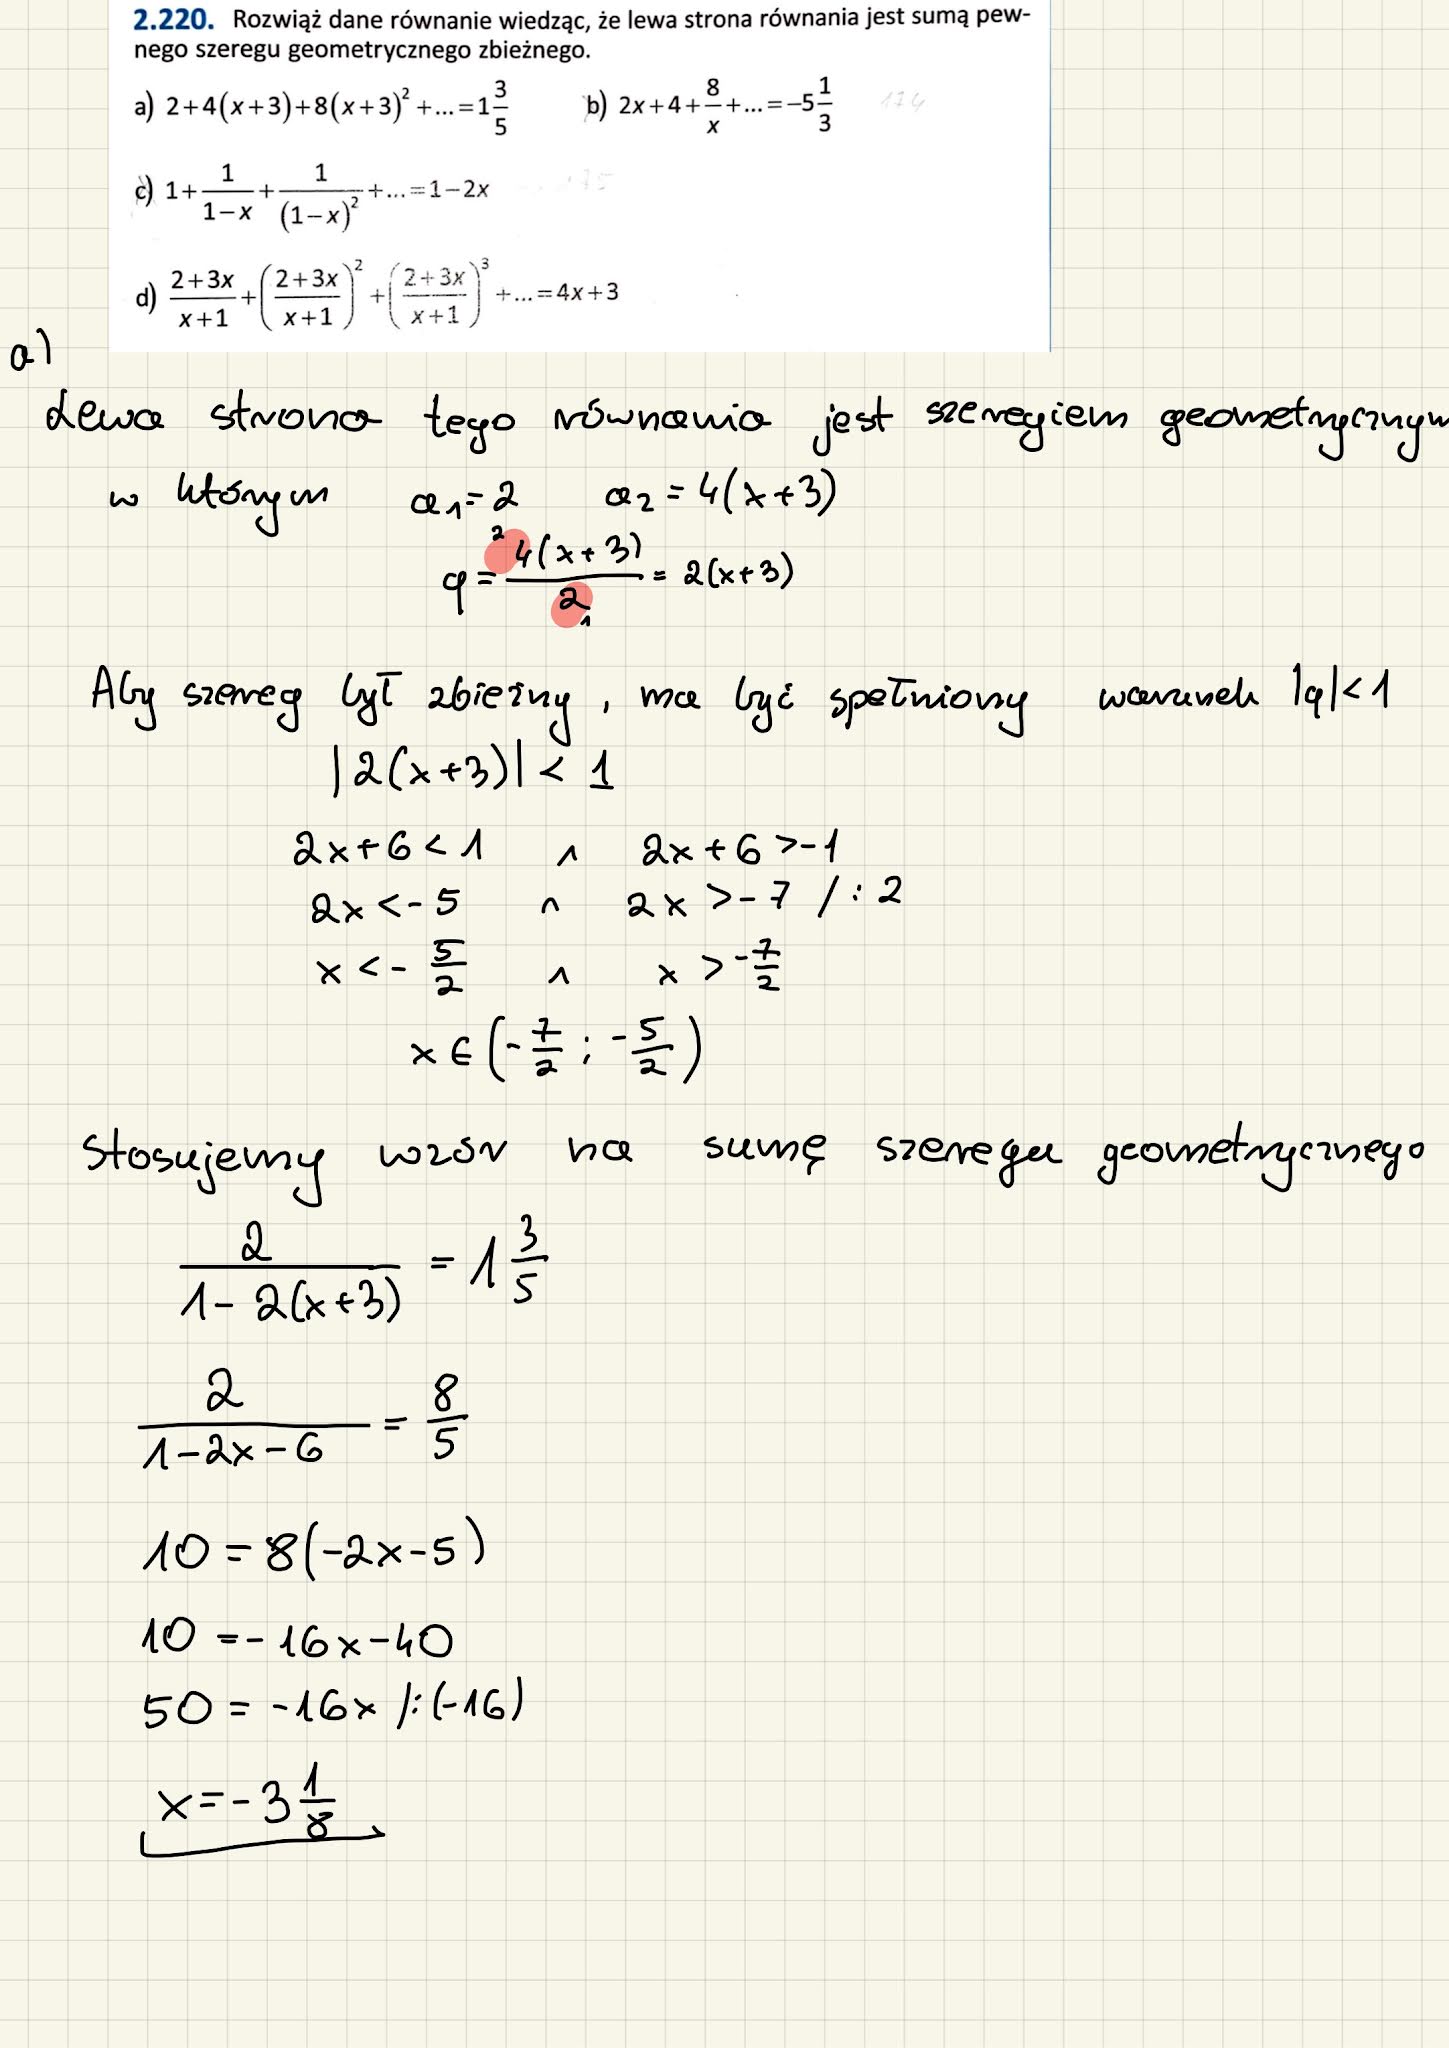 2.220. Rozwiąż dane równanie wiedząc, że lewa strona równania jest sumą pew-
nego szeregu geometrycznego zbieżnego.
a) 2+4(x+3)+8(x+3)²+...=1 3/5 b) 2x+4+8/x+...=-5 1/3 174
c) 1+1/(1-x)+1/(1-x)²+...=1-2x 175
d) (2+3x)/(x+1)+((2+3x)/(x+1))²+((2+3x)/(x+1))³+...=4x+3
a)
Lewa strona tego równania jest szeregiem geometrycznym
w którym a₁=2 a₂=4(x+3)
q= ²4(x+3)/2₁ = 2(x+3)
Aby szereg był zbieżny, ma być spełniony warunek |q|<1
|2(x+3)| < 1
2x+6<1 ∧ 2x+6>-1
2x<-5 ∧ 2x>-7 /:2
x<-5/2 ∧ x>-7/2
x∈(-7/2; -5/2)
Stosujemy wzór na sumę szeregu geometrycznego
2/(1-2(x+3)) = 1 3/5
2/(1-2x-6) = 8/5
10=8(-2x-5)
10=-16x-40
50=-16x /:(-16)
x=-3 1/8